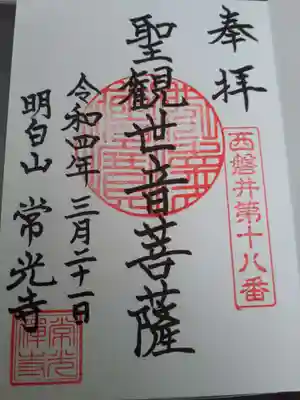 奉拝
西磐井第十八番
聖観世音菩薩
令和四年 三月二十一日
明白山 常光寺
常光禅寺